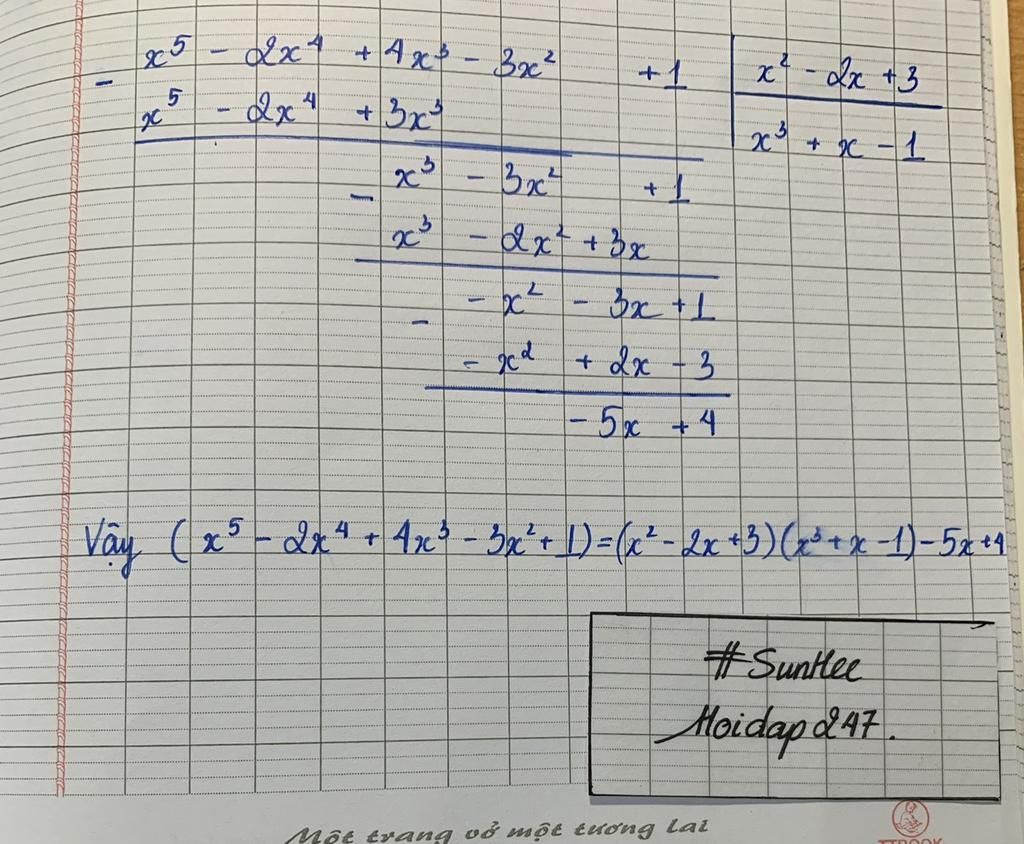 x⁵ - 2x⁴ + 4x³ - 3x² + 1
x² - 2x + 3
-
x⁵ - 2x⁴ + 3x³
x³ + x - 1
x³ - 3x² + 1
-
x³ - 2x² + 3x
- x² - 3x + 1
-
- x² + 2x - 3
- 5x + 4
Vậy (x⁵ - 2x⁴ + 4x³ - 3x² + 1) = (x² - 2x + 3)(x³ + x - 1) - 5x + 4
#SunHee
Hoidap247.
Một trang vở một tương lai